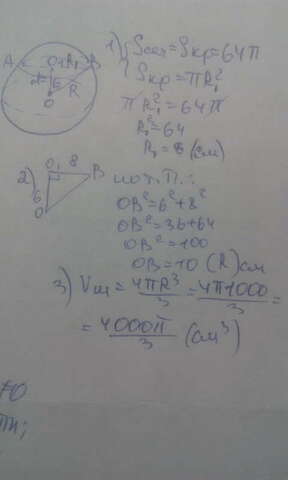 A O₁ R₁ B
d=6 R
O
1) { Sсеч = Sкр = 64π
{ Sкр = πR₁²
πR₁² = 64π
R₁² = 64
R₁ = 8 (см)
2) O₁ 8 B
6
O
по т. П.:
OB² = 6² + 8²
OB² = 36 + 64
OB² = 100
OB = 10 (R) см
3) Vш = 4πR³/3 = 4π1000/3 =
= 4000π/3 (см³)